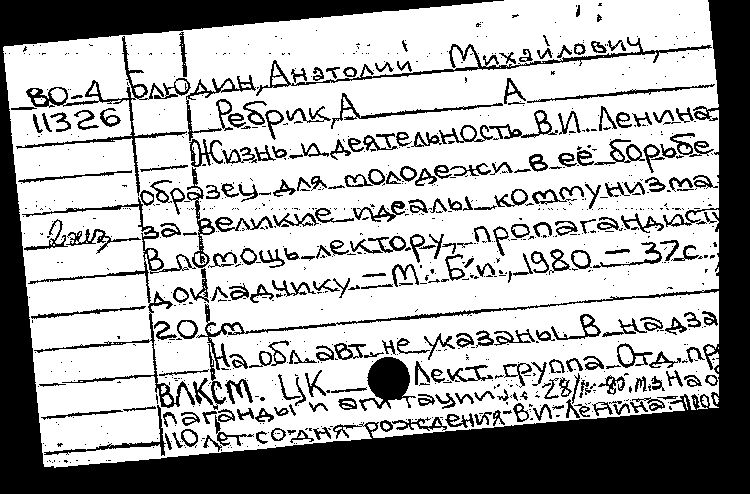 ВО-4 Блюдин, Анатолий Михайлович,
11326 Ребрик, А А
Жизнь и деятельность В.И. Ленина
образец для молодежи в её борьбе
2 экз за великие идеалы коммунизма
В помощь лектору, пропагандисту
докладчику. – М.: Б.и., 1980. – 37с.
20 см
На обл. авт. не указаны. В надза
ВЛКСМ. ЦК Лект. группа Отд. пр
паганды и агитации. 28/II-80. М.З На о
110 лет со дня рождения В.И. Ленина.